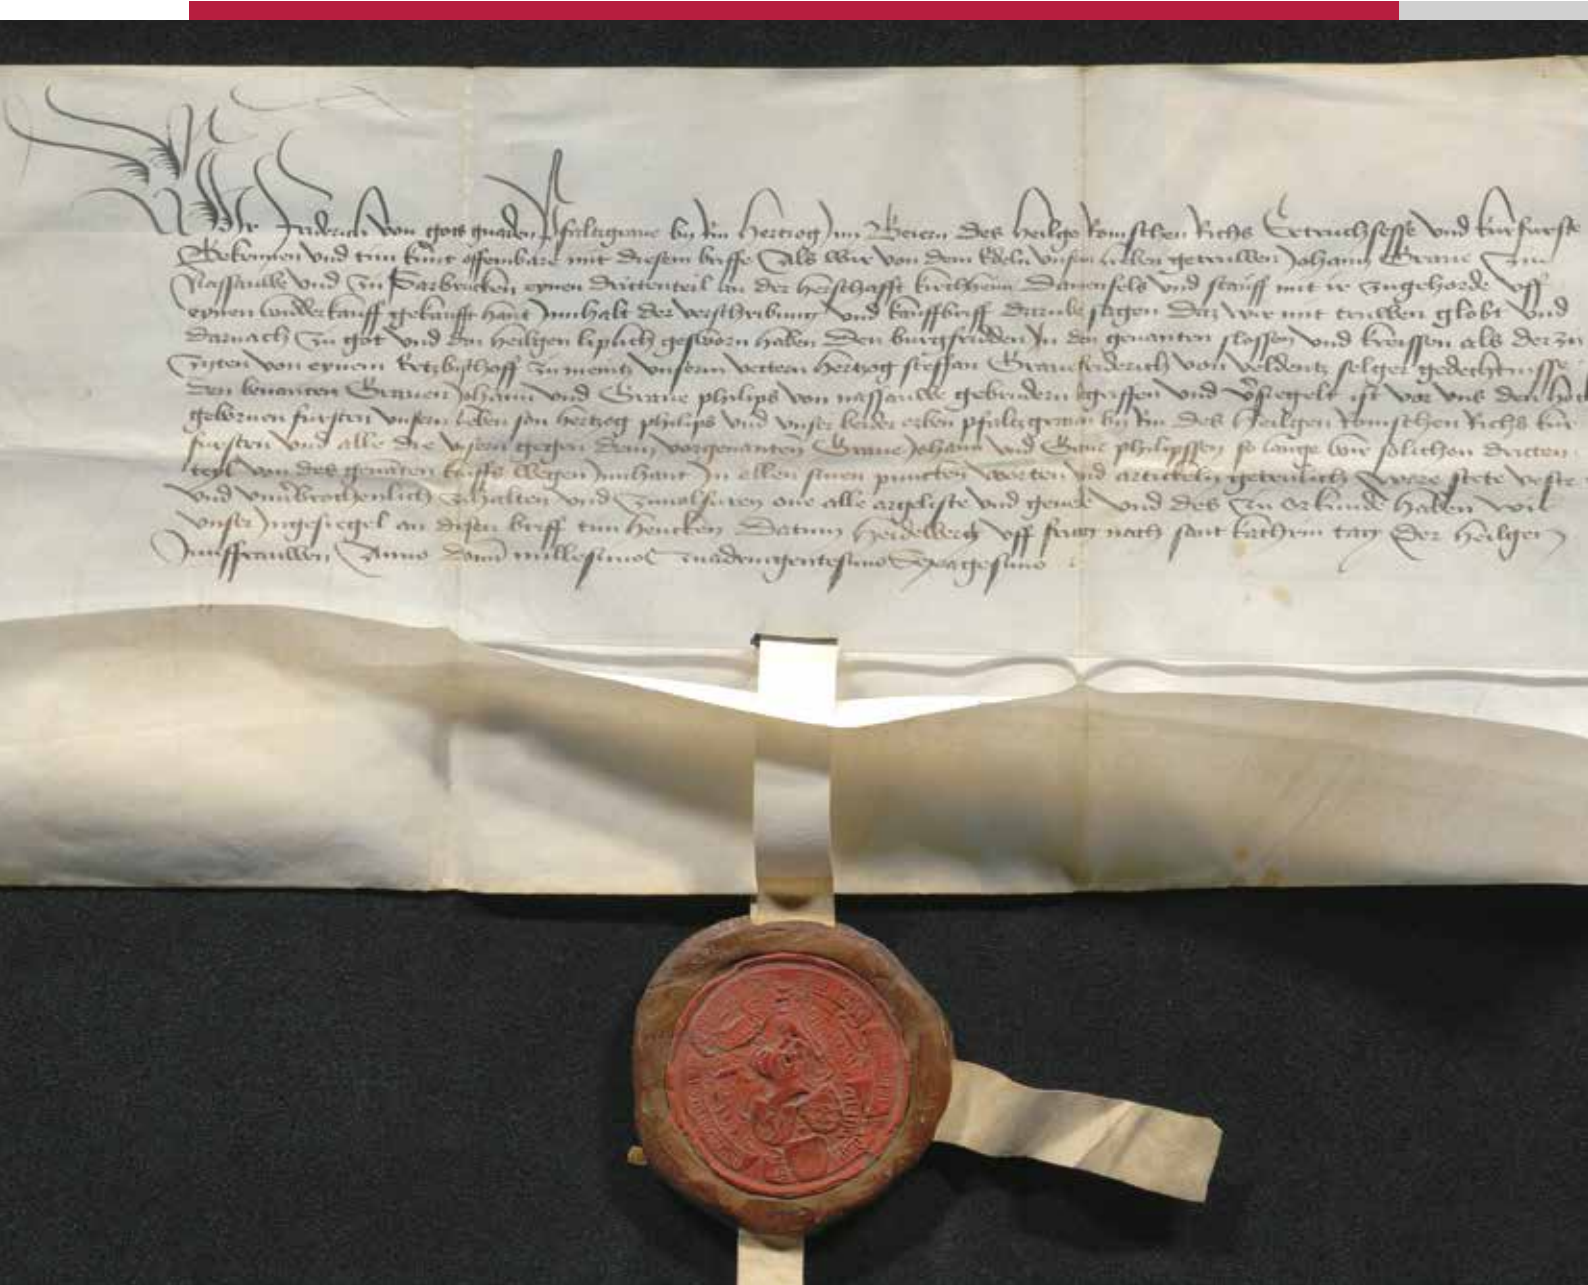 Wir Friderich von gots gnaden Pfaltzgraue by Rin Hertzog in Beiern des heilge Romschen Richs Ertztruchsesse vnd kurfurste
Bekennen vnd tun kunt offembare mit diesem brieffe Als wir von dem Edeln vnserm lieben getruwen Johann Graue zu
Nassauwe vnd zu Sarbrucken eynen drittenteil an der herschafft kirchheim Danenfels vnd stauff mit ir zugehorde vff
eynen widderkauff gekaufft hant Innhalt der verschribung vnd kauffbrieff daruber sagen Daz wir mit truwen globt vnd
darnach zu got vnd den heilgen liplich gesworn haben den burgfridden In den genanten slossen vnd kreissen als der zu
zyten von eynem Ertzbischoff zu mentz vnserm vettern Hertzog steffan Graue friderich von veldentz selger gedechtnisse
den benanten Grauen Johann vnd Graue philips von nassauwe gebrudern begriffen vnd versiegelt ist vor vns den hoch
gebornen fursten vnsern lieben son hertzog philips vnd vnser beider erben pfaltzgrauen by Rin des Heilgen Romschen Richs kur
fursten vnd alle die vnsern gegen dem vorgenanten Graue Johann vnd Graue philipssen so lange wir solichen dritten
teyl von des genanten kauffs wegen Innhant In allen sinen puncten worten vnd artickeln getrulich ware stete veste
vnd vnuerbrochenlich zuhalten vnd zuuolfuren one alle argeliste vnd geuerde vnd des zu orkunde haben wir
vnser Ingesiegel an disen brieff tun hencken Datum Heidelberg vff fritag nach sant kathrin tag der heilgen
Junffrauwen Anno domini millesimo quadringentesimo Sexagesimo